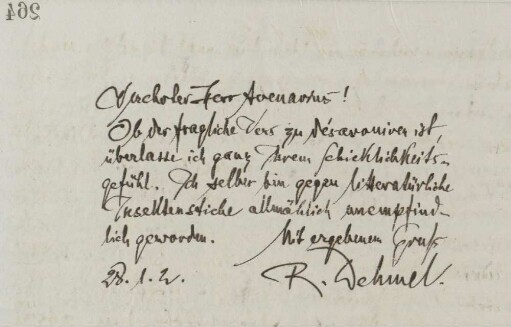 264
Verehrter Herr Avenarius!
Ob der fragliche Vers zu désavouiren ist,
überlasse ich ganz Ihrem Schicklichkeits-
gefühl. Ich selber bin gegen litteratürliche
Insektenstiche allmählich unempfind-
lich geworden. Mit ergebenem Gruß
28.1.2. R. Dehmel.